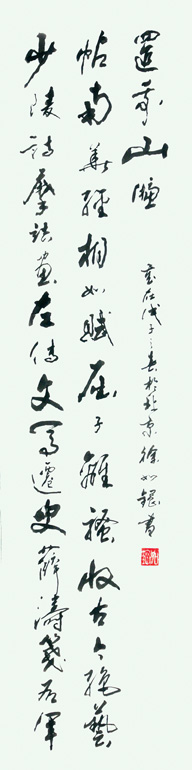 少陵詩摩詰畫左傳文馬遷史薛濤箋右軍
帖南華經相如賦屈子離騷收古今絕藝
置我山牕
戊子之春於北京徐如書